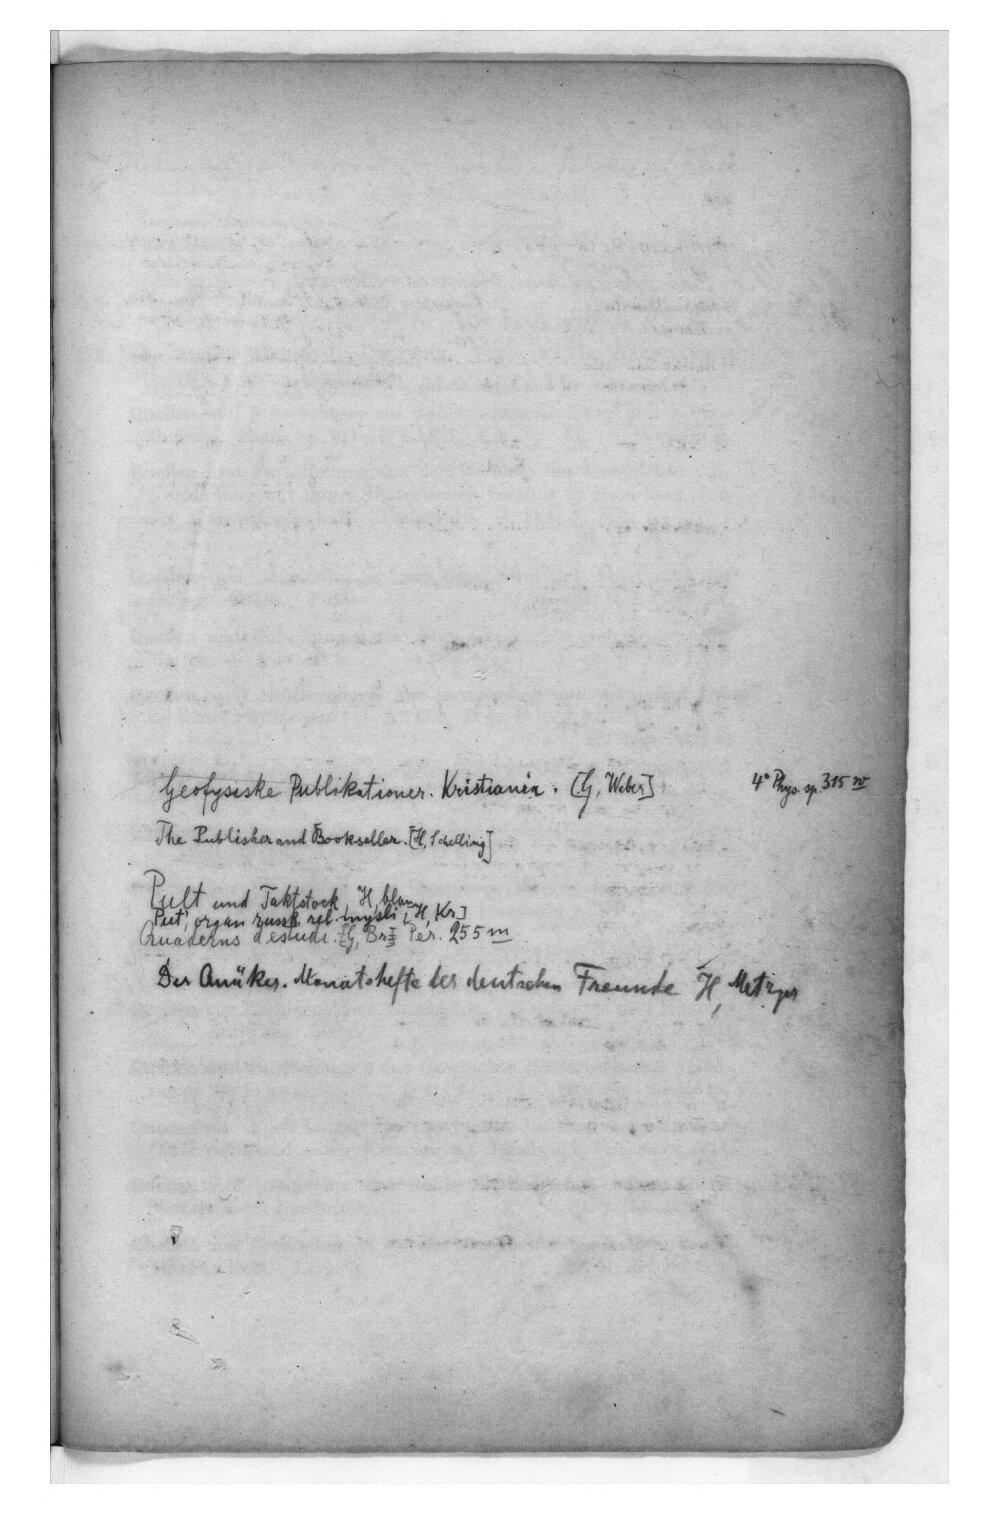 Geofysiske Publikationer. Kristiania. [G, Weber] 4° Phys. sp. 315 m
The Publisher and Bookseller. [H, Schelling]
Pult und Taktstock H,
Put', organ russk. rel. mysli [H, Kr]
Quaderns d'estudi. [G, Br] Per. 255 m
Der Quäker. Monatshefte der deutschen Freunde H, Metzger